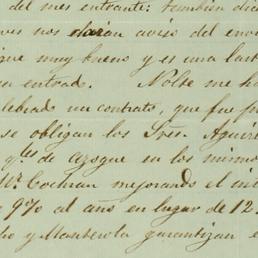 del mes entrante: tambien dic
ves nos darán aviso del env
que muy bueno y es una last
n entrad. Nolte me ha
lebrado un contrato, que fue f
se obligan los Sres. Aguir
qles de azogue en los mismo
Mr. Cochran mejorando el int
a 9% al año en lugar de 12.
ho y Manterola garantizan e